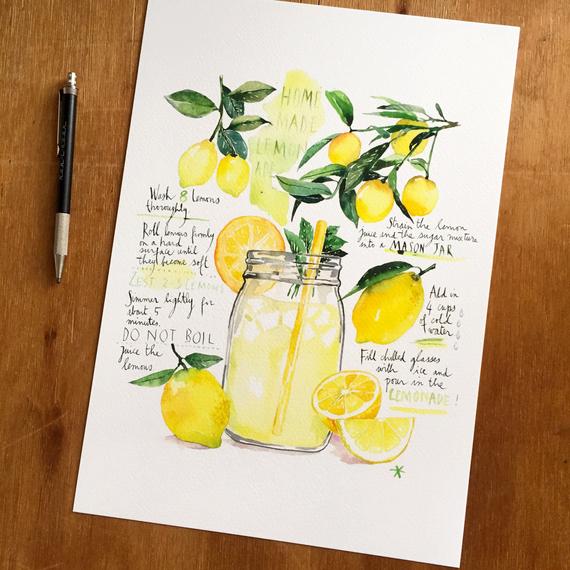 HOME
MADE
LEMON
ADE
Wash 8 lemons
thoroughly
Roll lemons firmly
on a hard
surface until
they become soft
ZEST 2-3 LEMONS
Simmer lightly for
about 5
minutes.
DO NOT BOIL
Juice the
lemons
Strain the lemon
juice and the sugar mixture
into a MASON JAR
Add in
4 cups
of cold
water
Fill chilled glasses
with ice and
pour in the
LEMONADE!